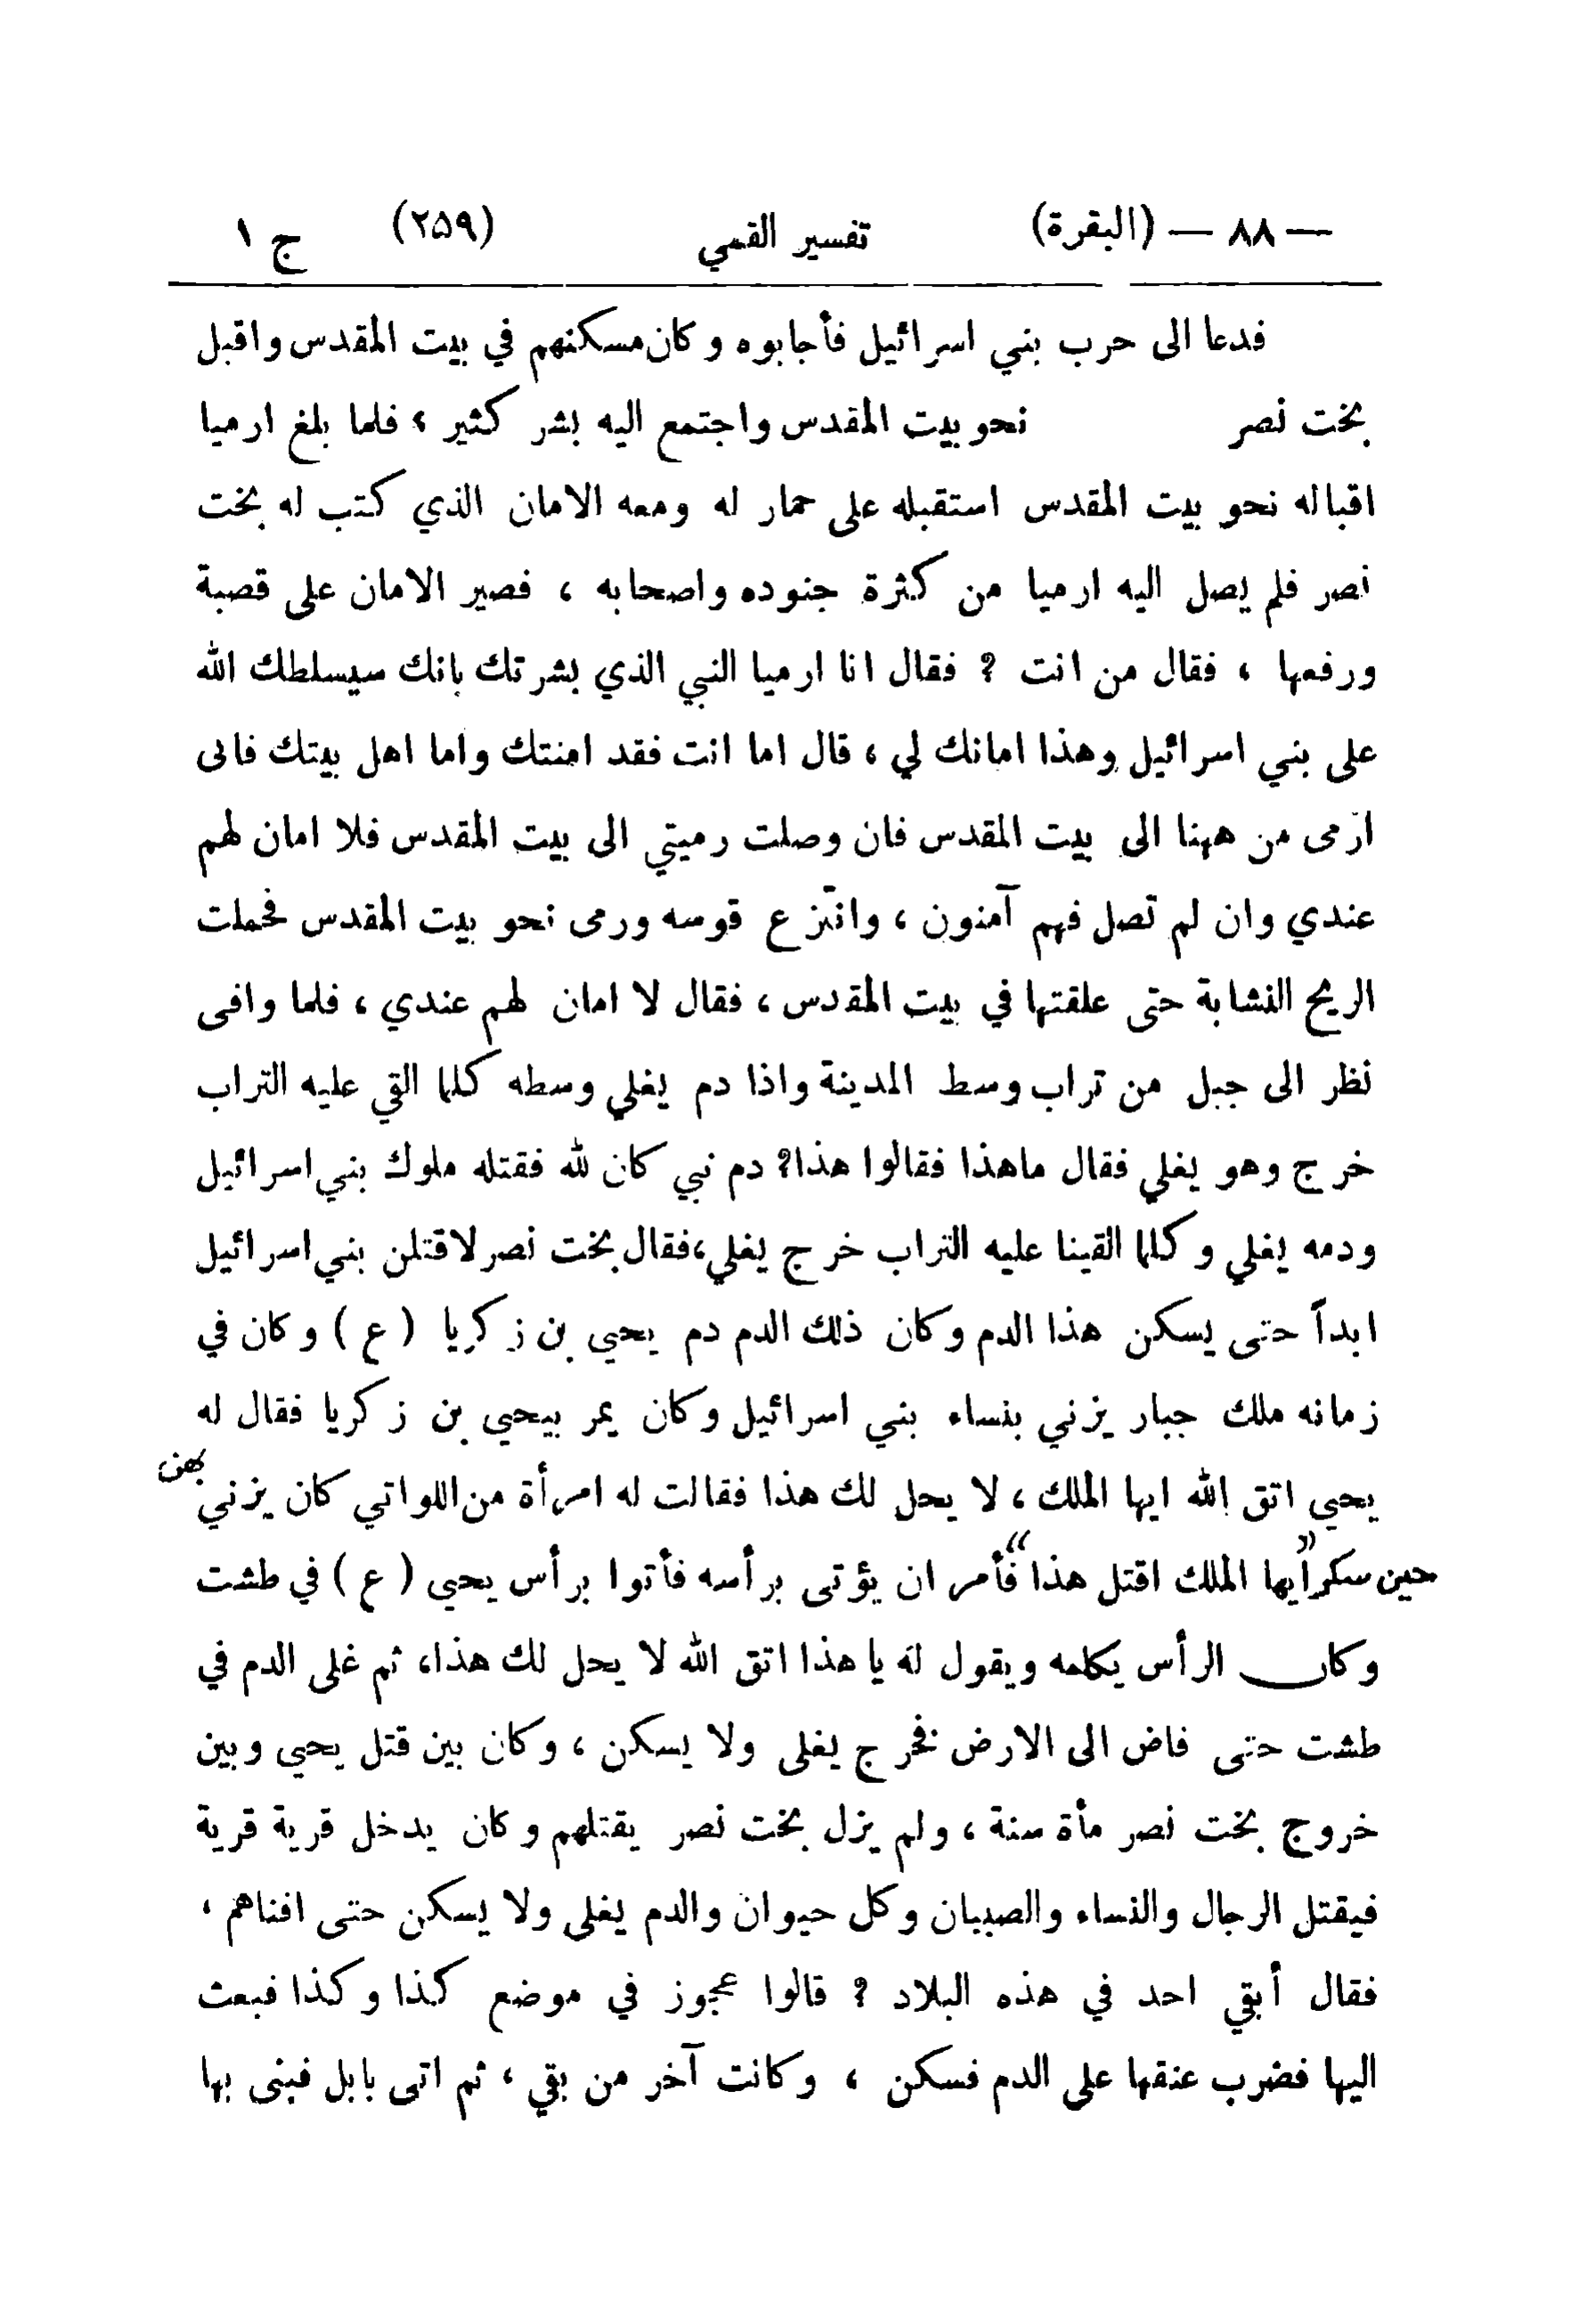 — ٨٨ — (البقرة) تفسير القمي (٢٥٩) ج ١
فدعا الى حرب بني اسرائيل فأجابوه وكان مسكنهم في بيت المقدس واقبل
بخت نصر نحو بيت المقدس واجتمع اليه بشر كثير ، فلما بلغ ارميا
اقباله نحو بيت المقدس استقبله على حمار له ومعه الامان الذي كتب له بخت
نصر فلم يصل اليه ارميا من كثرة جنوده واصحابه ، فصير الامان على قصبة
ورفعها ، فقال من انت ? فقال انا ارميا النبي الذي بشرتك بانك سيسلطك الله
على بني اسرائيل وهذا امانك لي ، قال اما انت فقد امنتك واما اهل بيتك فانى
ارمى من ههنا الى بيت المقدس فان وصلت رميتي الى بيت المقدس فلا امان لهم
عندي وان لم تصل فهم آمنون ، وانتزع قوسه ورمى نحو بيت المقدس فحملت
الريح النشابة حتى علقتها في بيت المقدس ، فقال لا امان لهم عندي ، فلما وافى
نظر الى جبل من تراب وسط المدينة واذا دم يغلي وسطه كلما القي عليه التراب
خرج وهو يغلي فقال ماهذا فقالوا هذا? دم نبي كان لله فقتله ملوك بني اسرائيل
ودمه يغلي وكلما القينا عليه التراب خرج يغلي،فقال بخت نصر لاقتلن بني اسرائيل
ابداً حتى يسكن هذا الدم وكان ذلك الدم دم يحيي بن زكريا ( ع ) وكان في
زمانه ملك جبار يزني بنساء بني اسرائيل وكان يمر بيحيي بن زكريا فقال له
يحيي اتق الله ايها الملك ، لا يحل لك هذا فقالت له امرأة من اللواتي كان يزني بهن
حين سكر «أيها الملك اقتل هذا» فأمر ان يؤتى برأسه فأتوا برأس يحيى ( ع ) في طشت
وكان الرأس يكلمه ويقول له يا هذا اتق الله لا يحل لك هذا، ثم غلى الدم في
طشت حتى فاض الى الارض فخرج يغلى ولا يسكن ، وكان بين قتل يحيى وبين
خروج بخت نصر مأة سنة ، ولم يزل بخت نصر يقتلهم وكان يدخل قرية قرية
فيقتل الرجال والنساء والصبيان وكل حيوان والدم يغلى ولا يسكن حتى افناهم ،
فقال أبقي احد في هذه البلاد ? قالوا عجوز في موضع كذا وكذا فبعث
اليها فضرب عنقها على الدم فسكن ، وكانت آخر من بقي ، ثم اتى بابل فبنى بها